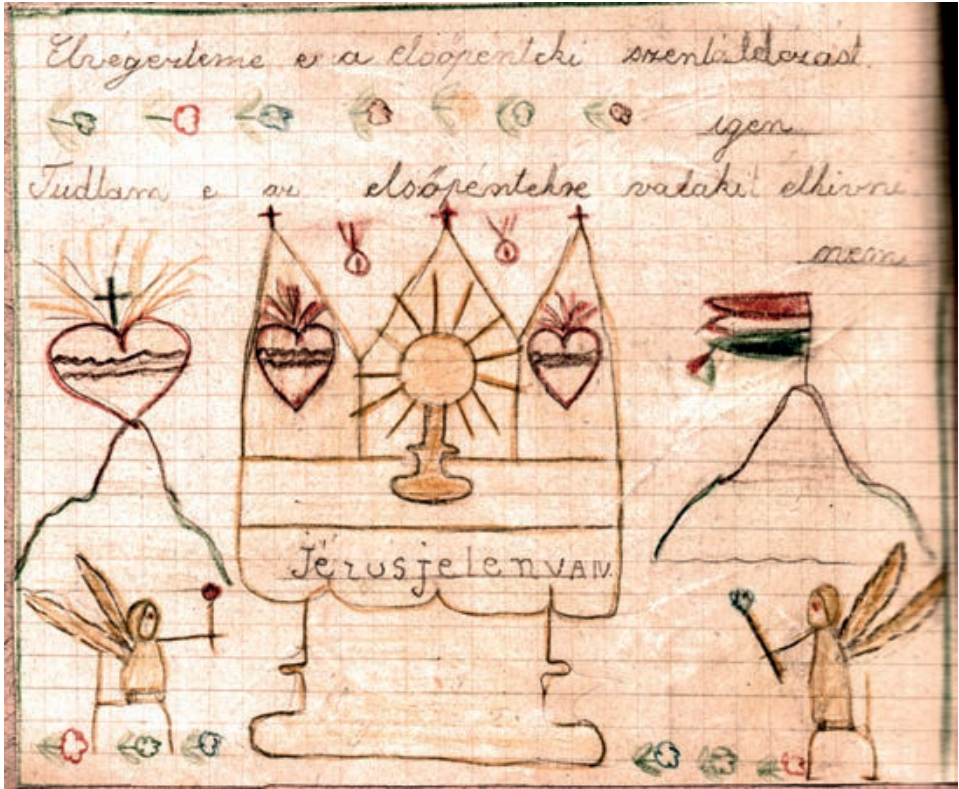 Elvégezteme e a elsőpénteki szentáldozást.
igen
Tudtam e az elsőpéntekre valakit elhivni
nem
Jézusjelenvan